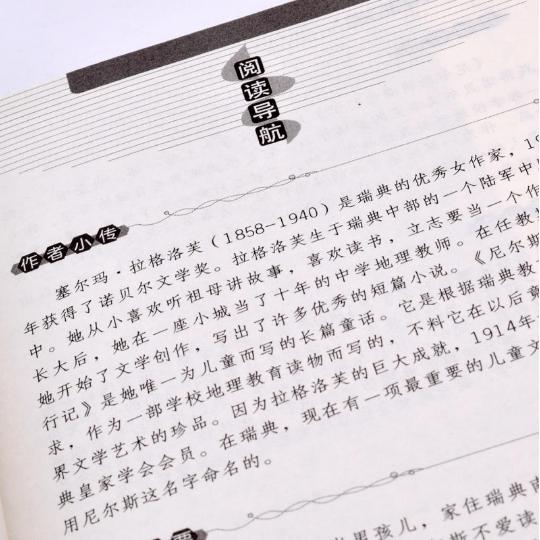 阅读导航
作者小传
塞尔玛·拉格洛芙（1858-1940）是瑞典的优秀女作家，19
年获得了诺贝尔文学奖。拉格洛芙生于瑞典中部的一个陆军中
中。她从小喜欢听祖母讲故事，喜欢读书，立志要当一个作
长大后，她在一座小城当了十年的中学地理教师。在任教期
她开始了文学创作，写出了许多优秀的短篇小说。《尼尔斯
行记》是她唯一为儿童而写的长篇童话。它是根据瑞典教
求，作为一部学校地理教育读物而写的，不料它在以后竟
界文学艺术的珍品。因为拉格洛芙的巨大成就，1914年
典皇家学会会员。在瑞典，现在有一项最重要的儿童文
用尼尔斯这名字命名的。
男孩儿，家住瑞典南
斯不爱读